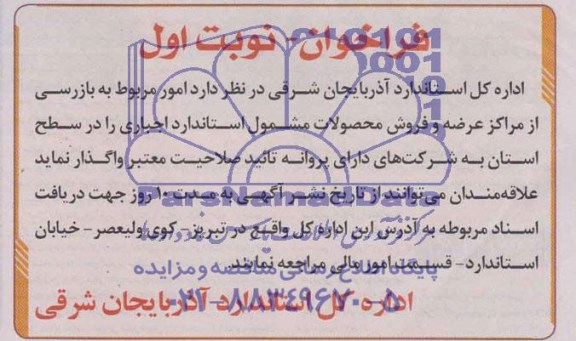 فراخوان- نوبت اول
اداره کل استاندارد آذربایجان شرقی در نظر دارد امور مربوط به بازرسی
از مراکز عرضه و فروش محصولات مشمول استاندارد اجباری را در سطح
استان به شرکت‌های دارای پروانه تائید صلاحیت معتبر واگذار نماید
علاقه‌مندان می‌توانند از تاریخ نشر آگهی به مدت ۱۰ روز جهت دریافت
اسناد مربوطه به آدرس این اداره کل واقع در تبریز- کوی ولیعصر- خیابان
استاندارد- قسمت امور مالی مراجعه نمایند.
اداره کل استاندارد آذربایجان شرقی
ParsNamadData
پایگاه اطلاع رسانی مناقصه و مزایده
۰۲۱-۸۸۳۴۹۶۷۰-۵